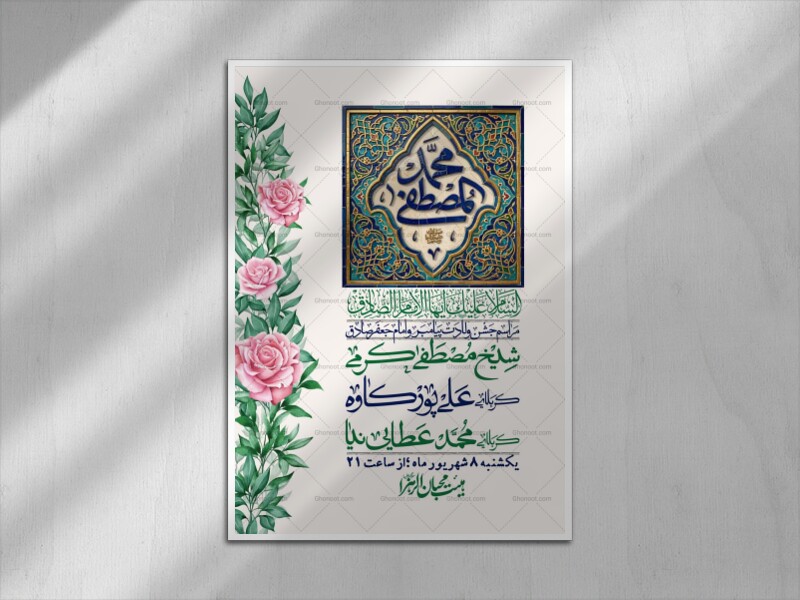 محمد
المصطفی
السلام علیک ایها الامام الصادق
مراسم جشن ولادت پیامبر و امام جعفر صادق
شیخ مصطفی کرمی
کربلائی علی پورکاوه
کربلائی محمد عطایی نیا
یکشنبه ۸ شهریور ماه ؛ از ساعت ۲۱
هیئت محبان الزهرا
Ghonoot.com